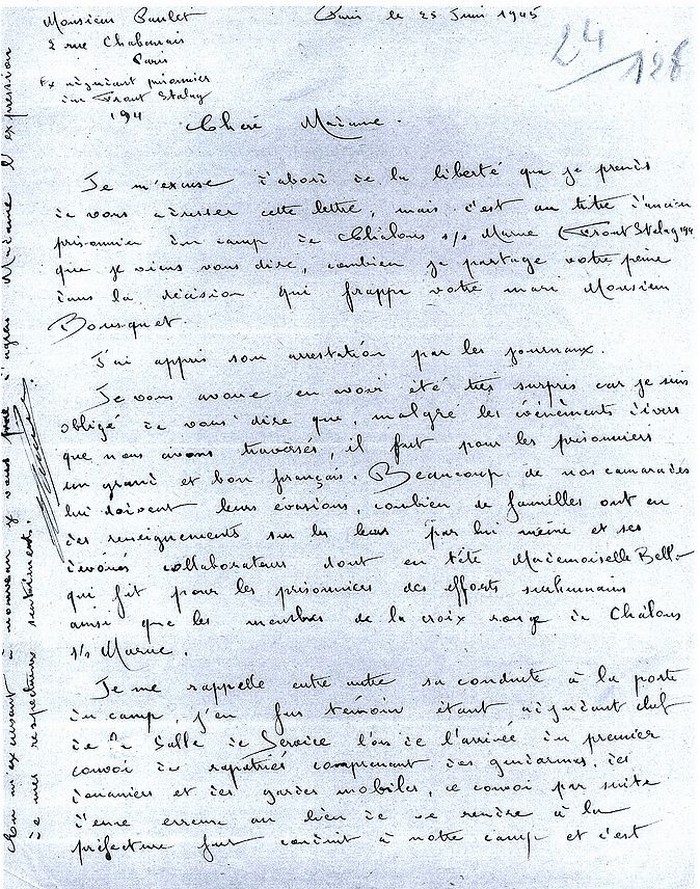 Monsieur Paulet
2 rue Chabanais
Paris
Ex adjudant prisonnier
du Front Stalag
194
Paris le 25 Juin 1945
24
128
Chère Madame.
Je m'excuse d'abord de la liberté que je prends
de vous adresser cette lettre, mais c'est au titre d'ancien
prisonnier du camp de Châlons s/s Marne (Front Stalag 194
que je viens vous dire, combien je partage votre peine
dans la décision qui frappe votre mari Monsieur
Bousquet.
J'ai appris son arrestation par les journaux.
Je vous avoue en avoir été très surpris car je suis
obligé de vous dire que, malgré les événements divers
que nous avons traversés, il fut pour les prisonniers
un grand et bon français. Beaucoup de nos camarades
lui doivent leurs évasions, combien de familles ont eu
des renseignements sur les leurs par lui même et ses
dévoués collaborateurs dont en tête Mademoiselle Bell
qui fit pour les prisonniers des efforts surhumains
ainsi que les membres de la croix rouge de Châlons
s/s Marne.
Je me rappelle entre autre sa conduite à la porte
du camp, j'en fus témoin étant adjudant chef
de la Salle de Service lors de l'arrivée du premier
convoi de rapatriés comprenant des gendarmes, des
douaniers et des gardes mobiles, ce convoi par suite
d'une erreur au lieu de se rendre à la
préfecture fut conduit à notre camp et c'est
En m'excusant à nouveau je vous prie d'agréer Madame l'expression
de mes respectueux sentiments.